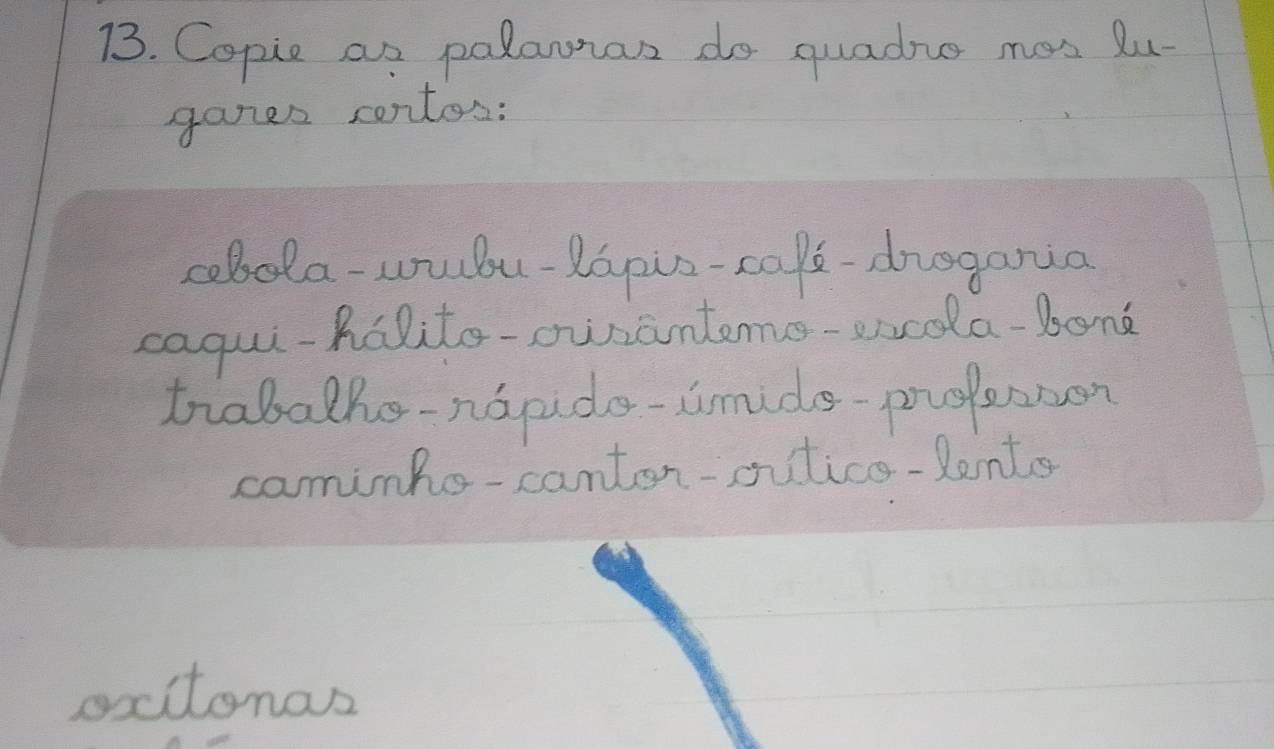 13. Copie as palavras do quadro nos lu-
gares certos:
cebola - urubu - lápis - café - drogaria
caqui - hálito - crisântemo - escola - boné
trabalho - rápido - úmido - professor
caminho - cantor - crítico - lento
oxítonas